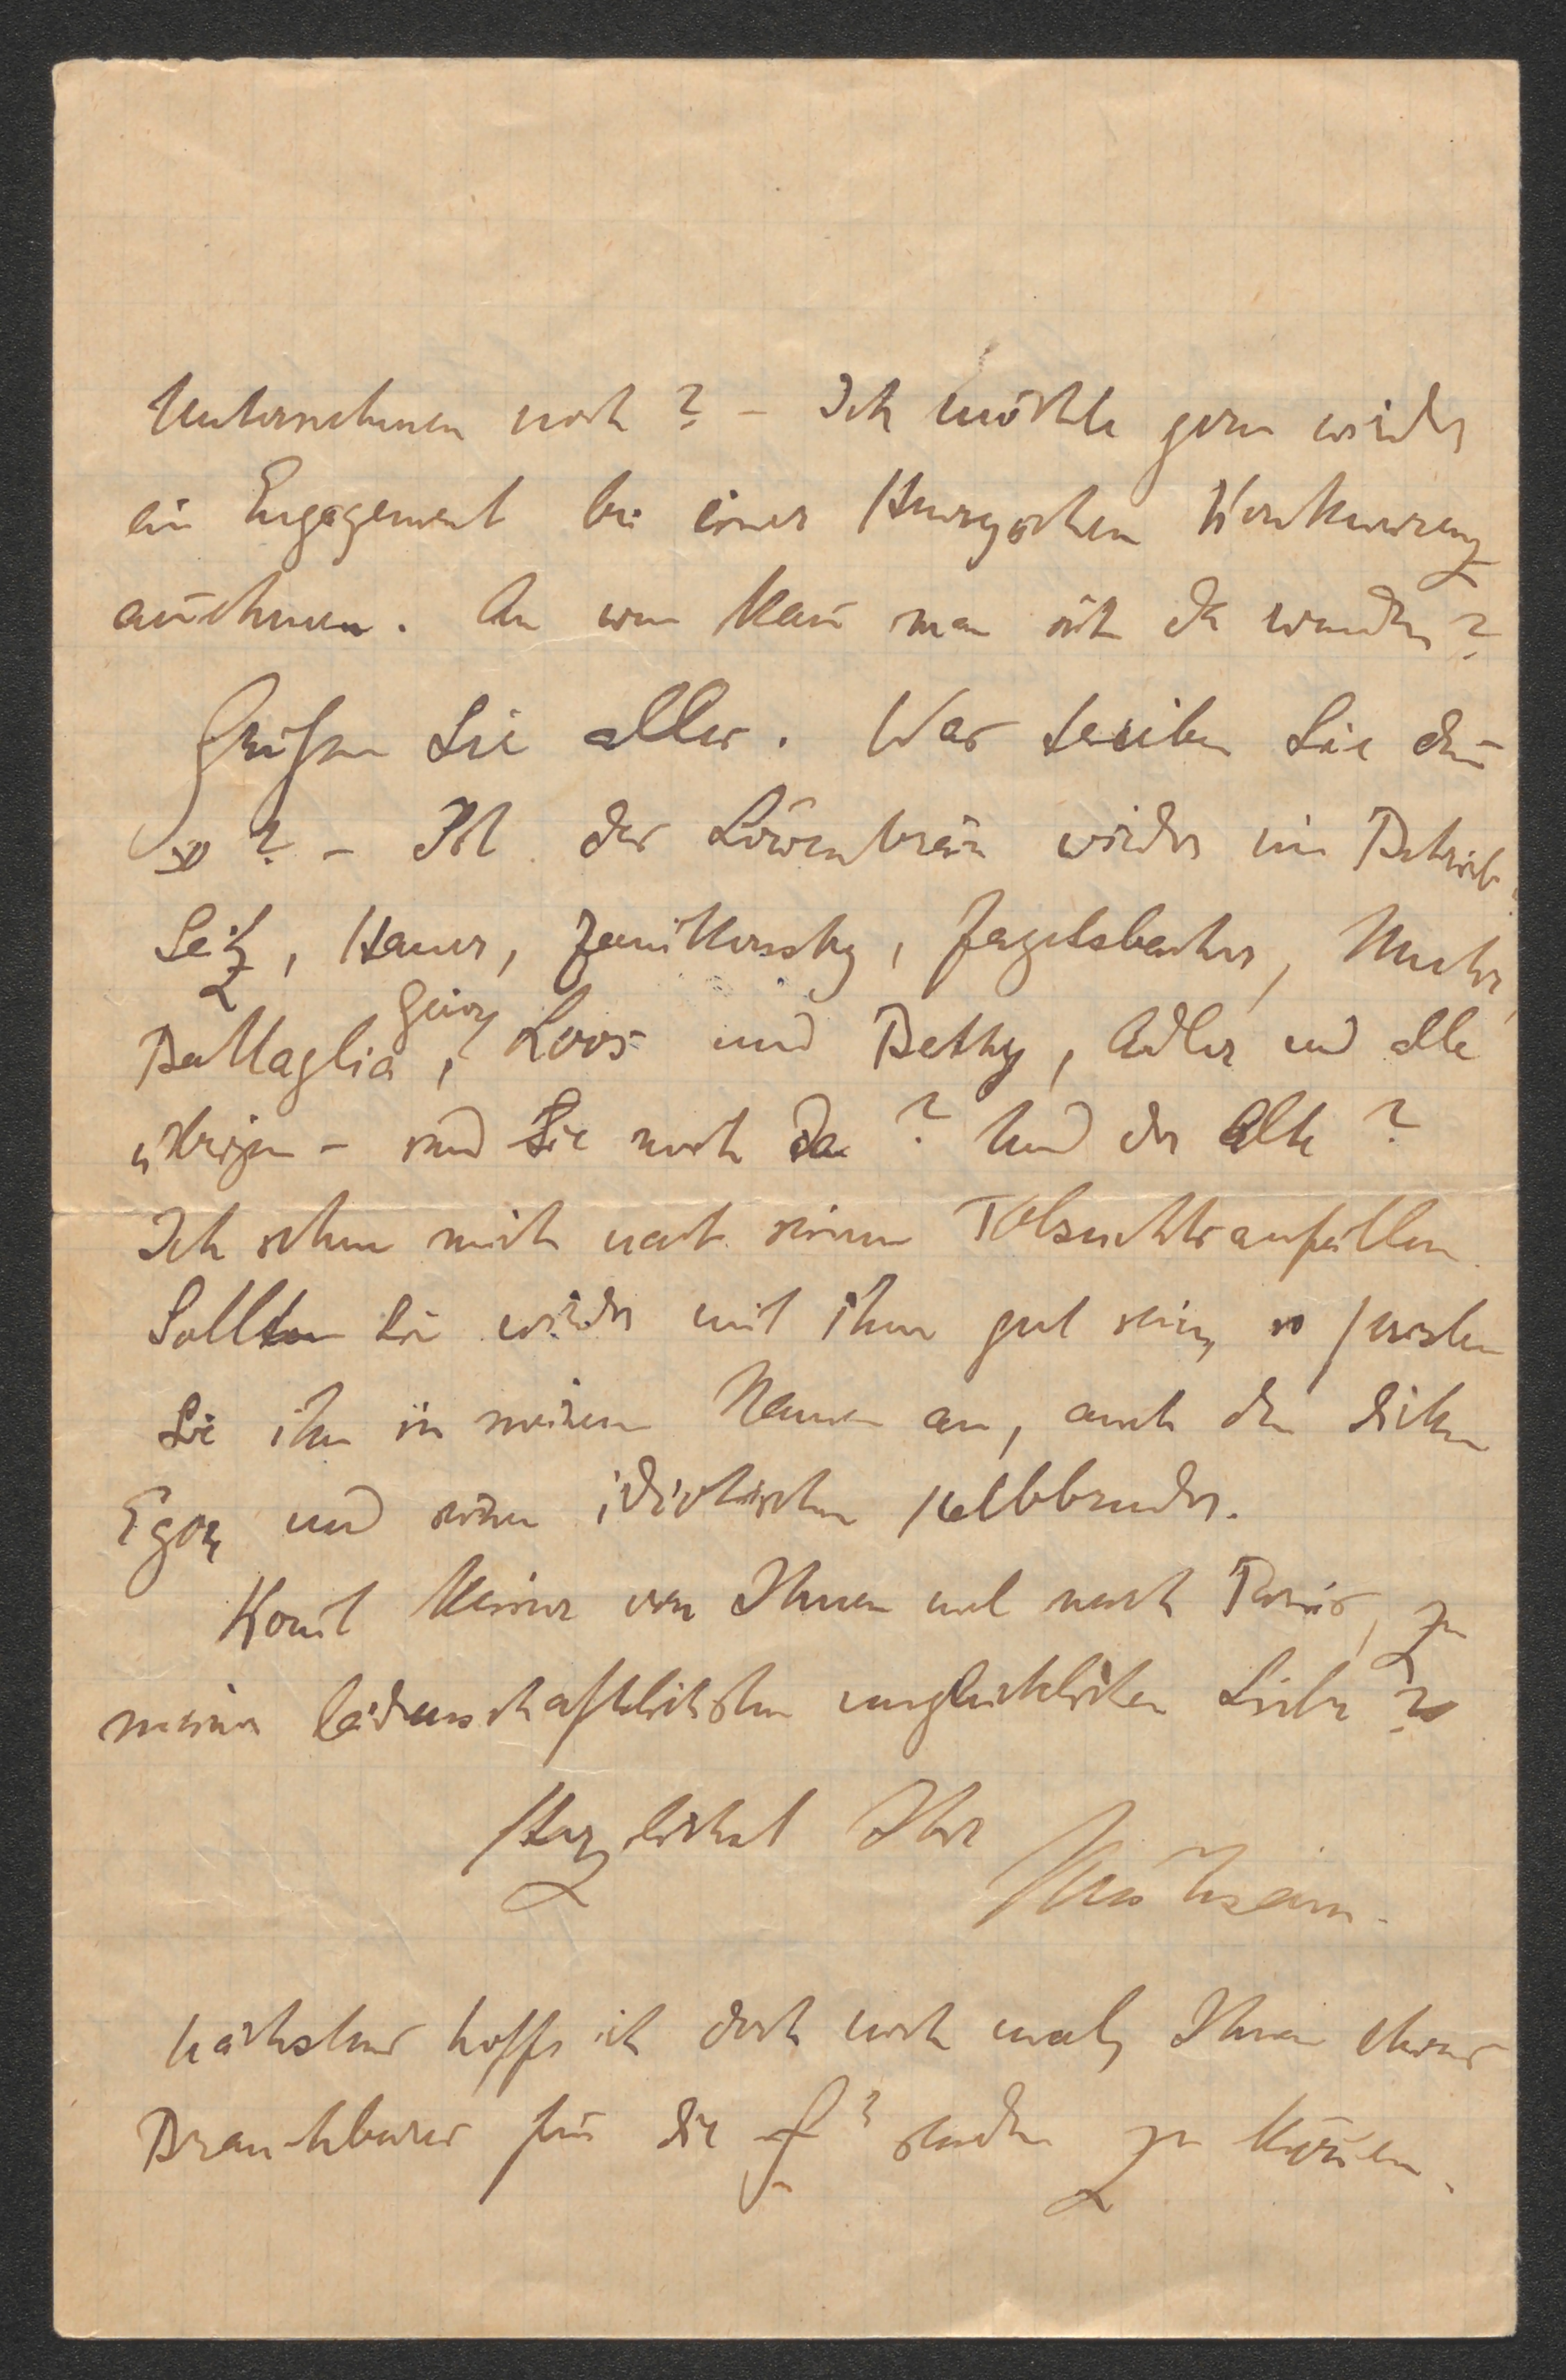 Unternehmen noch? – Ich möchte gern wieder
ein Engagement bei einer Henryschen Konkurrenz
anehmen. An wen kan̄ man sich da wenden?
Grüßen Sie alles. Was treiben Sie den̄
so? – Ist das Löwenbräu wieder im Betrieb?
Seitz, Hauer, Janikowsky, Jagelsbacher, Mucha,
Battaglia, Georg Loos und Betty, Adler und alle
übrigen – sind Sie noch da? Und der Alte?
Ich sehne mich nach seinen Tobsuchtsanfällen.
Sollten Sie wieder mit ihm gut sein, so
Sie ihn in meinem Namen an, auch den dicken
Egon und seinen idiotischen Halbbruder.
Kom̄t keiner von Ihnen mal nach Paris, zu
meiner leidenschaftlichsten unglücklichen Liebe?
Herzlichst Ihr
Mühsam.
Nächstens hoffe ich doch noch mal, Ihnen etwas
Brauchbares für die f senden zu kön̄en.